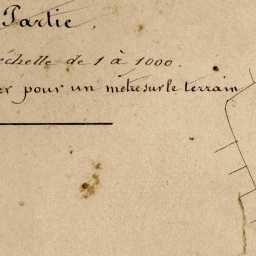 Partie.
échelle de 1 à 1000.
er pour un mètre sur le terrain